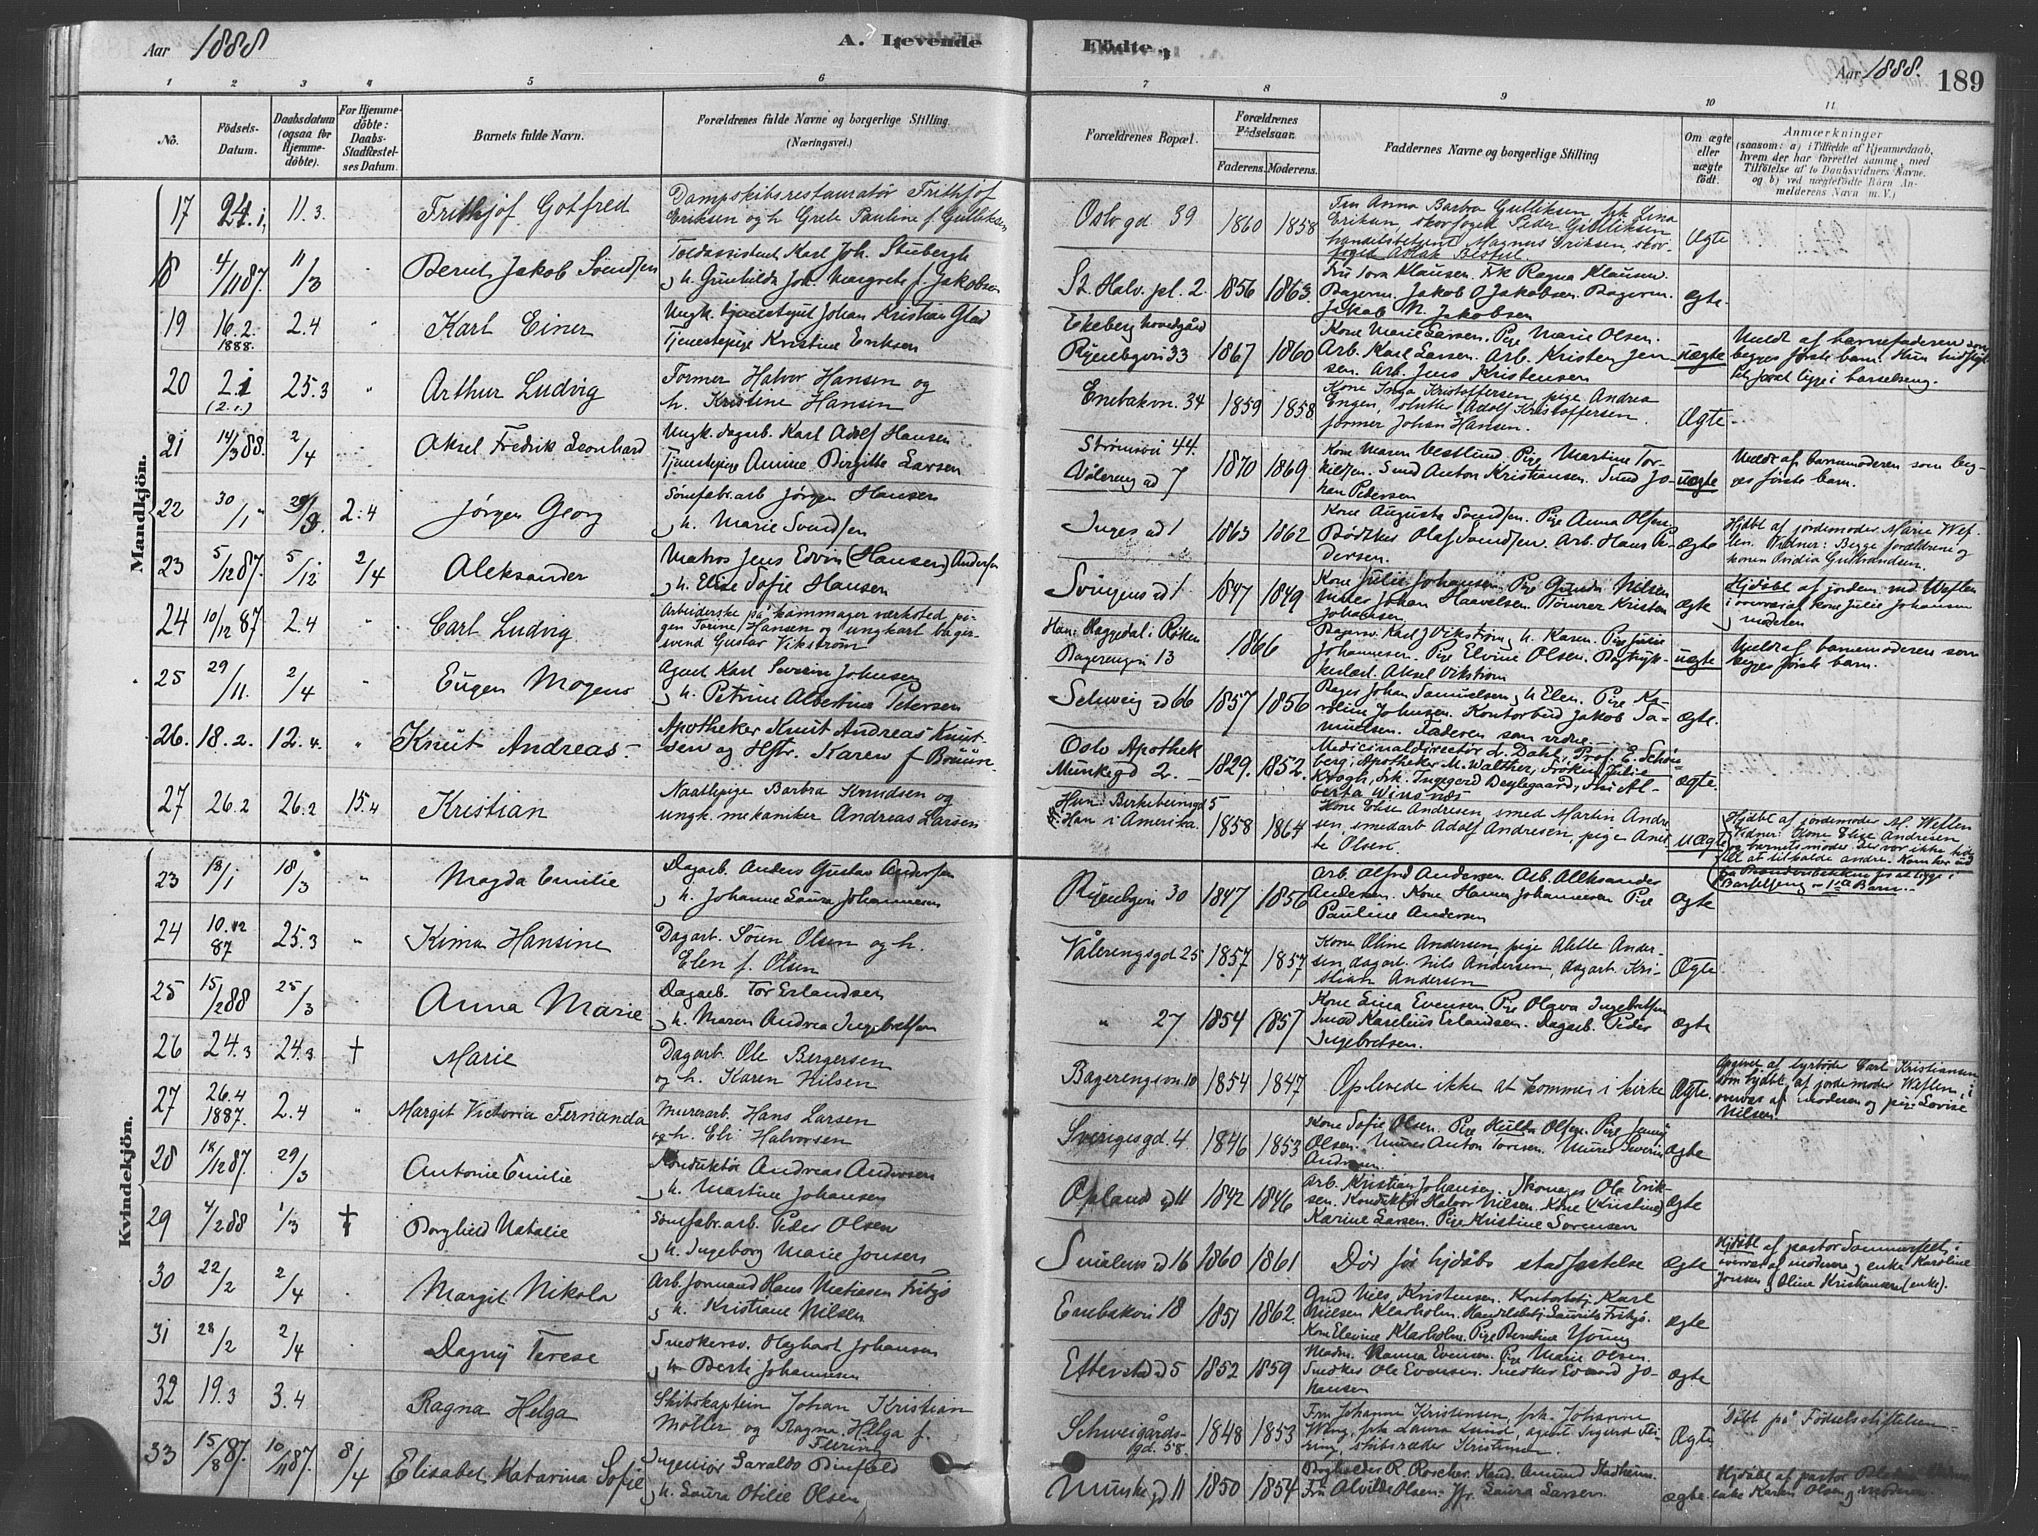 Aar 1888
A. Levende
Födte.
Aar 1888.
189
1 2 3 4 5 6 7 8 9 10 11
No.
Födsels-
Datum.
Daabsdatum
(ogsaa for
Hjemme-
döbte).
For Hjemme-
döbte:
Daabs-
Stadfæstel-
ses Datum.
Barnets fulde Navn.
Forældrenes fulde Navne og borgerlige Stilling
(Næringsvei.)
Forældrenes Bopæl.
Forældrenes
Födselsaar.
Faderens. Moderens.
Faddernes Navne og borgerlige Stilling
Om ægte
eller
uægte
födt.
Anmærkninger
(saasom: a) i Tilfælde af Hjemmedaab,
hvem der har forrettet samme, med
Tilföielse af to Daabsvidners Navne.
og b) ved uægtefödte Börn An-
melderens Navn m. V.)
Mandkjön.
17 24.1. 11.3. Frithjof Gotfred
Dampskibsrestauratør Frithjof
Eriksen og h. Grete Pauline f. Gulliksen
Oslogd 39 1860 1858
Fru Anna Barbra Gulliksen, frk Lina
Eriksen, skovfoged Peder Gulliksen
handelsbetjent Magnus Eriksen, skov-
Ægte
18 4/11 87. 11/3 Bernt Jakob Svendsen
Toldassistent Karl Joh. Stubergh
h. Gunhilda Joh. Margrete f. Jakobsen
St. Halv. pl. 2. 1856 1863.
Fru Tora Klausen. Frk Ragna Klausen.
Bagerm. Jakob O Jakobsen. Bagerm.
Jakob N. Jakobsen
ægte
19 16.2. 1888. 2.4 " Karl Einer
Ungk. tjenestegut Johan Kristian Glad
Tjenestepige Kristine Eriksen
Ekeberg hovedgård
Ryenbgvn 33 1867 1860
Kone Marie Larsen. Pige Marie Olsen.
Arb. Karl Larsen. Arb. Kristen Jen
sen. Arb. Jens Kristensen
uægte
Meldt af barnefaderen som
begges første barn.
20 2.1 (2.1.) 25.3 " Arthur Ludvig
Former Halvor Hansen og
h. Kristine Hansen
Enebakvn. 34 1859 1858
Kone Inga Kristoffersen, pige Andrea
Engen, slutter Adolf Kristoffersen
former Johan Hansen.
Ægte
21 14/3 88. 2/4 Aksel Fredrik Leonhard
Ungk. dagarb. Karl Adolf Hansen
Tjenestepige Amine Birgitte Larsen
Strømsvn 44.
Vålereng gd 7 1870 1869.
Kone Maren Vestlund Pige Martine Tor-
kilsen. Smed Anton Kristiansen. Smed Jo-
han Pedersen
uægte
Meldt af barnemoderen som beg-
ges første barn.
22 30/1 29/3. 2.4 Jørgen Georg
Sømfabr. arb Jørgen Hansen
h. Marie Svendsen
Inges gd 1 1863 1862
Kone Augusta Svendsen. Pige Anna Olsen
Bødtker Olaf Svendsen. Arb. Hans Pe-
dersen.
ægte
Hjdøbt af jordemoder Marie Wef-
len. Vidner: Begge forældrene og
konen Gulbrandsen.
23 5/12 87. 5/12 2/4 Aleksander
Matros Jens Edvin (Hansen) Andersen
h. Elise Sofie Hansen
Svergens gd 1 1847 1849
Kone Julie Johansen Pige Gunda Nilsen
Murer Johan Haavelsen. Tømrer Kristen
Johansen
ægte
Hjdøbt af jordem. md Weflen
i overvær af kone Julie Johansen
moderen
24 10/12 87 2.4 " Carl Ludvig
Arbeiderske på kammager værksted pi-
gen Torine Hansen og ungkarl bager-
svend Gustav Vikstrøm
Han: Haggedal i Røken
Bagerengvn 13 1866
Bagersv. Karl J Vikstrøm h. Karen. Pige Julie
Johannesen. Pige Elvine Olsen.
Aksel Vikstrøm
uægte
Meldt af barnemoderen som
begges første barn.
25 29/11. 2/4 Eugen Mogens
Agent Karl Severin Johnsen
h. Petrine Albertine Petersen
Schweig gd 66 1857 1856
Bager Johan Samuelsen, h. Elen. Pige Ka-
roline Johnsen. Kontorbud Jakob Sa-
muelsen. Faderen som vidne.
ægte.
26. 18.2. 12.4. " Knut Andreas
Apotheker Knut Andreas Knut-
sen og Hstr. Karen f Bruun
Oslo Apothek
Munkegd 2. 1829. 1852.
Medicinaldirectør d. Dahl, Prof. E. Schøn-
berg, Apotheker M. Walther, Frøken Julie
Krogh, frk. Ingegerd Døglegaard, Al-
berta Winsnæs
ægte.
27 26.2 26.2 15.4 Kristian
Naatlepige Barbra Knudsen og
ungk. mekaniker Andreas Larsen
Hun. Birkebeinergd 5
Han i Amerika. 1858 1864
Kone Elise Andresen, smed Martin Andre
sen, smedarb Adolf Andresen, pige Anet
te Olsen.
uægte
Hjdøbt af jordemoder M. Weflen
Vidner: Kone Elise Andresen
og barnets moder. Der var ikke tid
til at tilkalde andre.
Barselseng. 1ste Barn.
Kvindekjön.
23 18/1 18/3 " Magda Emilie
Dagarb. Anders Gustav Andersen
h. Johanne Laura Johannesen
Ryenbgvn 30 1847 1856
Arb. Alfred Andersen. Arb. Aleksander
Andersen. Kone Hanna Johannesen Pige
Pauline Andersen
ægte
24 10.12 87 25.3 " Kima Hansine
Dagarb. Søren Olsen og h.
Elen f. Olsen
Vålerengsgd 25 1857 1857
Kone Oline Andersen, pige Alette Ander-
sen, dagarb. Nils Andersen, dagarb. Kri-
stian Andersen
Ægte
25 15/2 88 25/3 Anna Marie
Dagarb. Tor Erlandsen
h. Maren Andrea Ingebretsen
" 27 1854 1857
Kone Lina Evensen Pige Olava Ingebretsen
Smed Karelius Erlandsen. Dagarb. Peder
Ingebretsen.
ægte
26 24.3 24.3 † Marie
Dagarb. Ole Bergersen
og h. Karen Nilsen
Bagerengvn 10 1854 1847
Oplevede ikke at komme i kirke
Ægte.
Opgivet af lysstøber Carl Kristiansen
som hjdøbt af jordemoder Weflen i
overvær af moderen og pige Lovise
Nilsen.
27 26.4 1887. 2.4 " Margit Victoria Fernanda
Murerarb. Hans Larsen
og h. Eli Halvorsen
Sverigesgd. 4 1846 1853
Kone Sofie Olsen. Pige Hulda Olsen. Pige Jenny
Olsen. Murer Anton Toresen. Murer Severin
ægte
28 18/12 87 29/3 Antonie Emilie
Konduktør Andreas Andersen
h. Martine Johansen
Opland gd 11 1842 1846
Arb. Kristian Johansen. Skomager Ole Erik-
sen. Konduktør Halvor Nilsen. Kone (Kristine)
Karine Larsen. Pige Kristine Sørensen
ægte
29 4/2 88 1/3 † Borghild Natalie
Sømfabr. arb. Peder Olsen
h. Ingeborg Marie Jonsen
Smålens gd 16 1860 1861
Død før hjdåbs stadfæstelse
ægte
Hjdøbt af pastor Sommerfelt i
overvær af moderen enke Karoline
Jonsen Oline Kristiansen (enke).
30 22/2 2/4 Margit Nikola
Arb. formand Hans Matiesen Fritzø
h. Kristiane Nilsen
Enebakvn 18 1851 1862.
Grd Nils Kristensen. Kontorbetj. Karl
Nilsen Klarholm. Handelsbetj. Laurits Fritzø.
Kone Elevine Klarholm. Pige Berntine Young
ægte
31 28/2 2/4 Dagny Terese
Snedkersv. Olaghart Johansen
h Berte Johannesen
Etterstad gd 5 1852 1859
Madm. Hanna Evensen. Pige Marie Olsen.
Snedker Ole Evensen. Snedker Edvard Jo-
hansen
ægte
32 19.3 3.4 Ragna Helga
Skibskaptein Johan Kristian
Møller og Ragna Helga f.
Schweigårds-
gd. 58 1848 1853
Fru Johanne Kristensen, frk. Johanne
Wing, frk Laura Lund, agent Sigurd
skibsreder Kristensen.
Ægte
Døbt på Fødselsstiftelsen
33 15/8 87. 10/11 87. 8/4 Elisabet Katarina Sofie
Ingeniør Saraldo Binfield
h. Laura Otilie Olsen
Munke gd 11 1850 1854
R. Roscher. Kand. Amund Stadheim.
Fru Alvilde Olsen. Jfr. Laura Larsen.
ægte
Hjdøbt af pastor
enke Karen Olsen moderen.